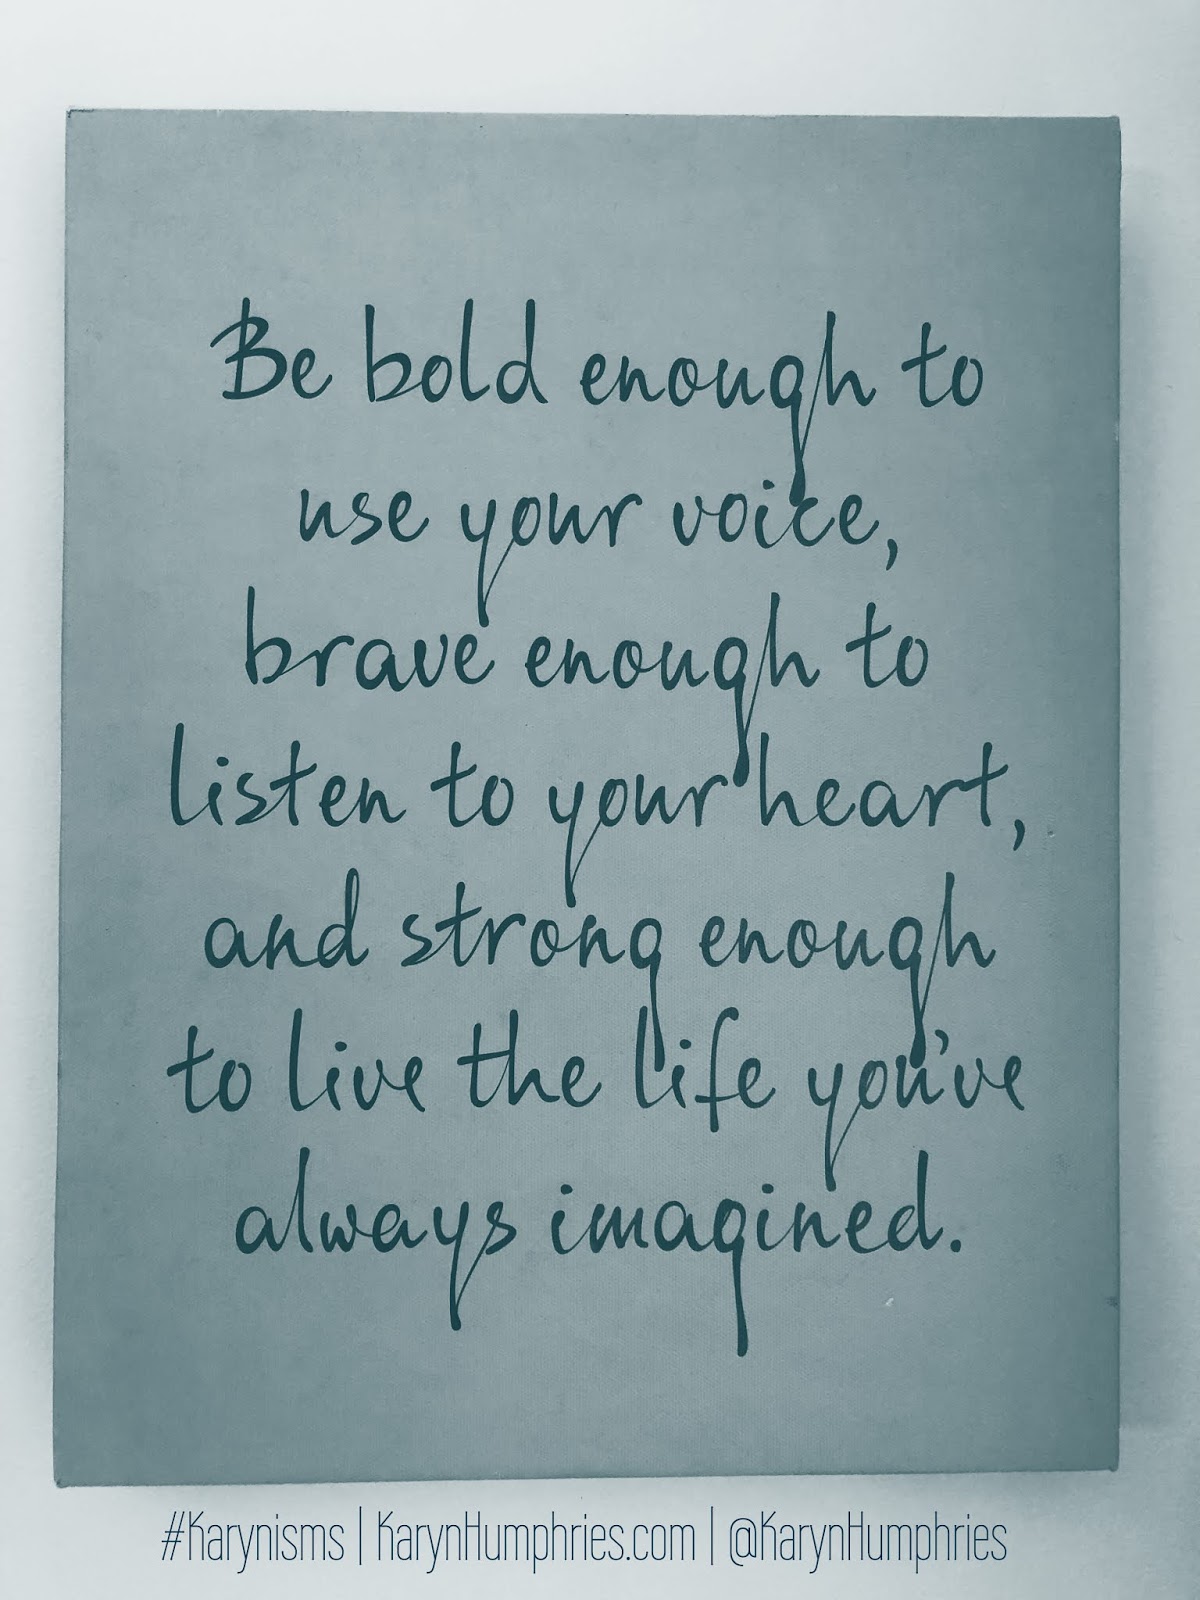 Be bold enough to
use your voice,
brave enough to
listen to your heart,
and strong enough
to live the life you've
always imagined.
#Karynisms | KarynHumphries.com | @KarynHumphries